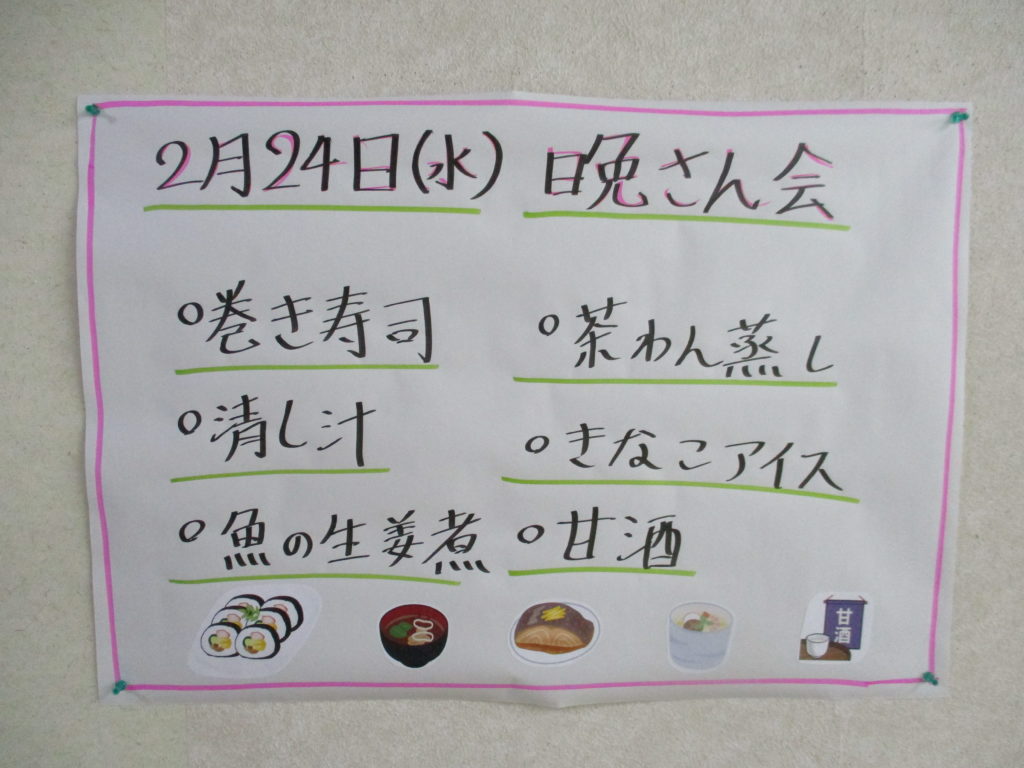 2月24日(水) 晩さん会
○巻き寿司
○茶わん蒸し
○清し汁
○きなこアイス
○魚の生姜煮
○甘酒
甘酒